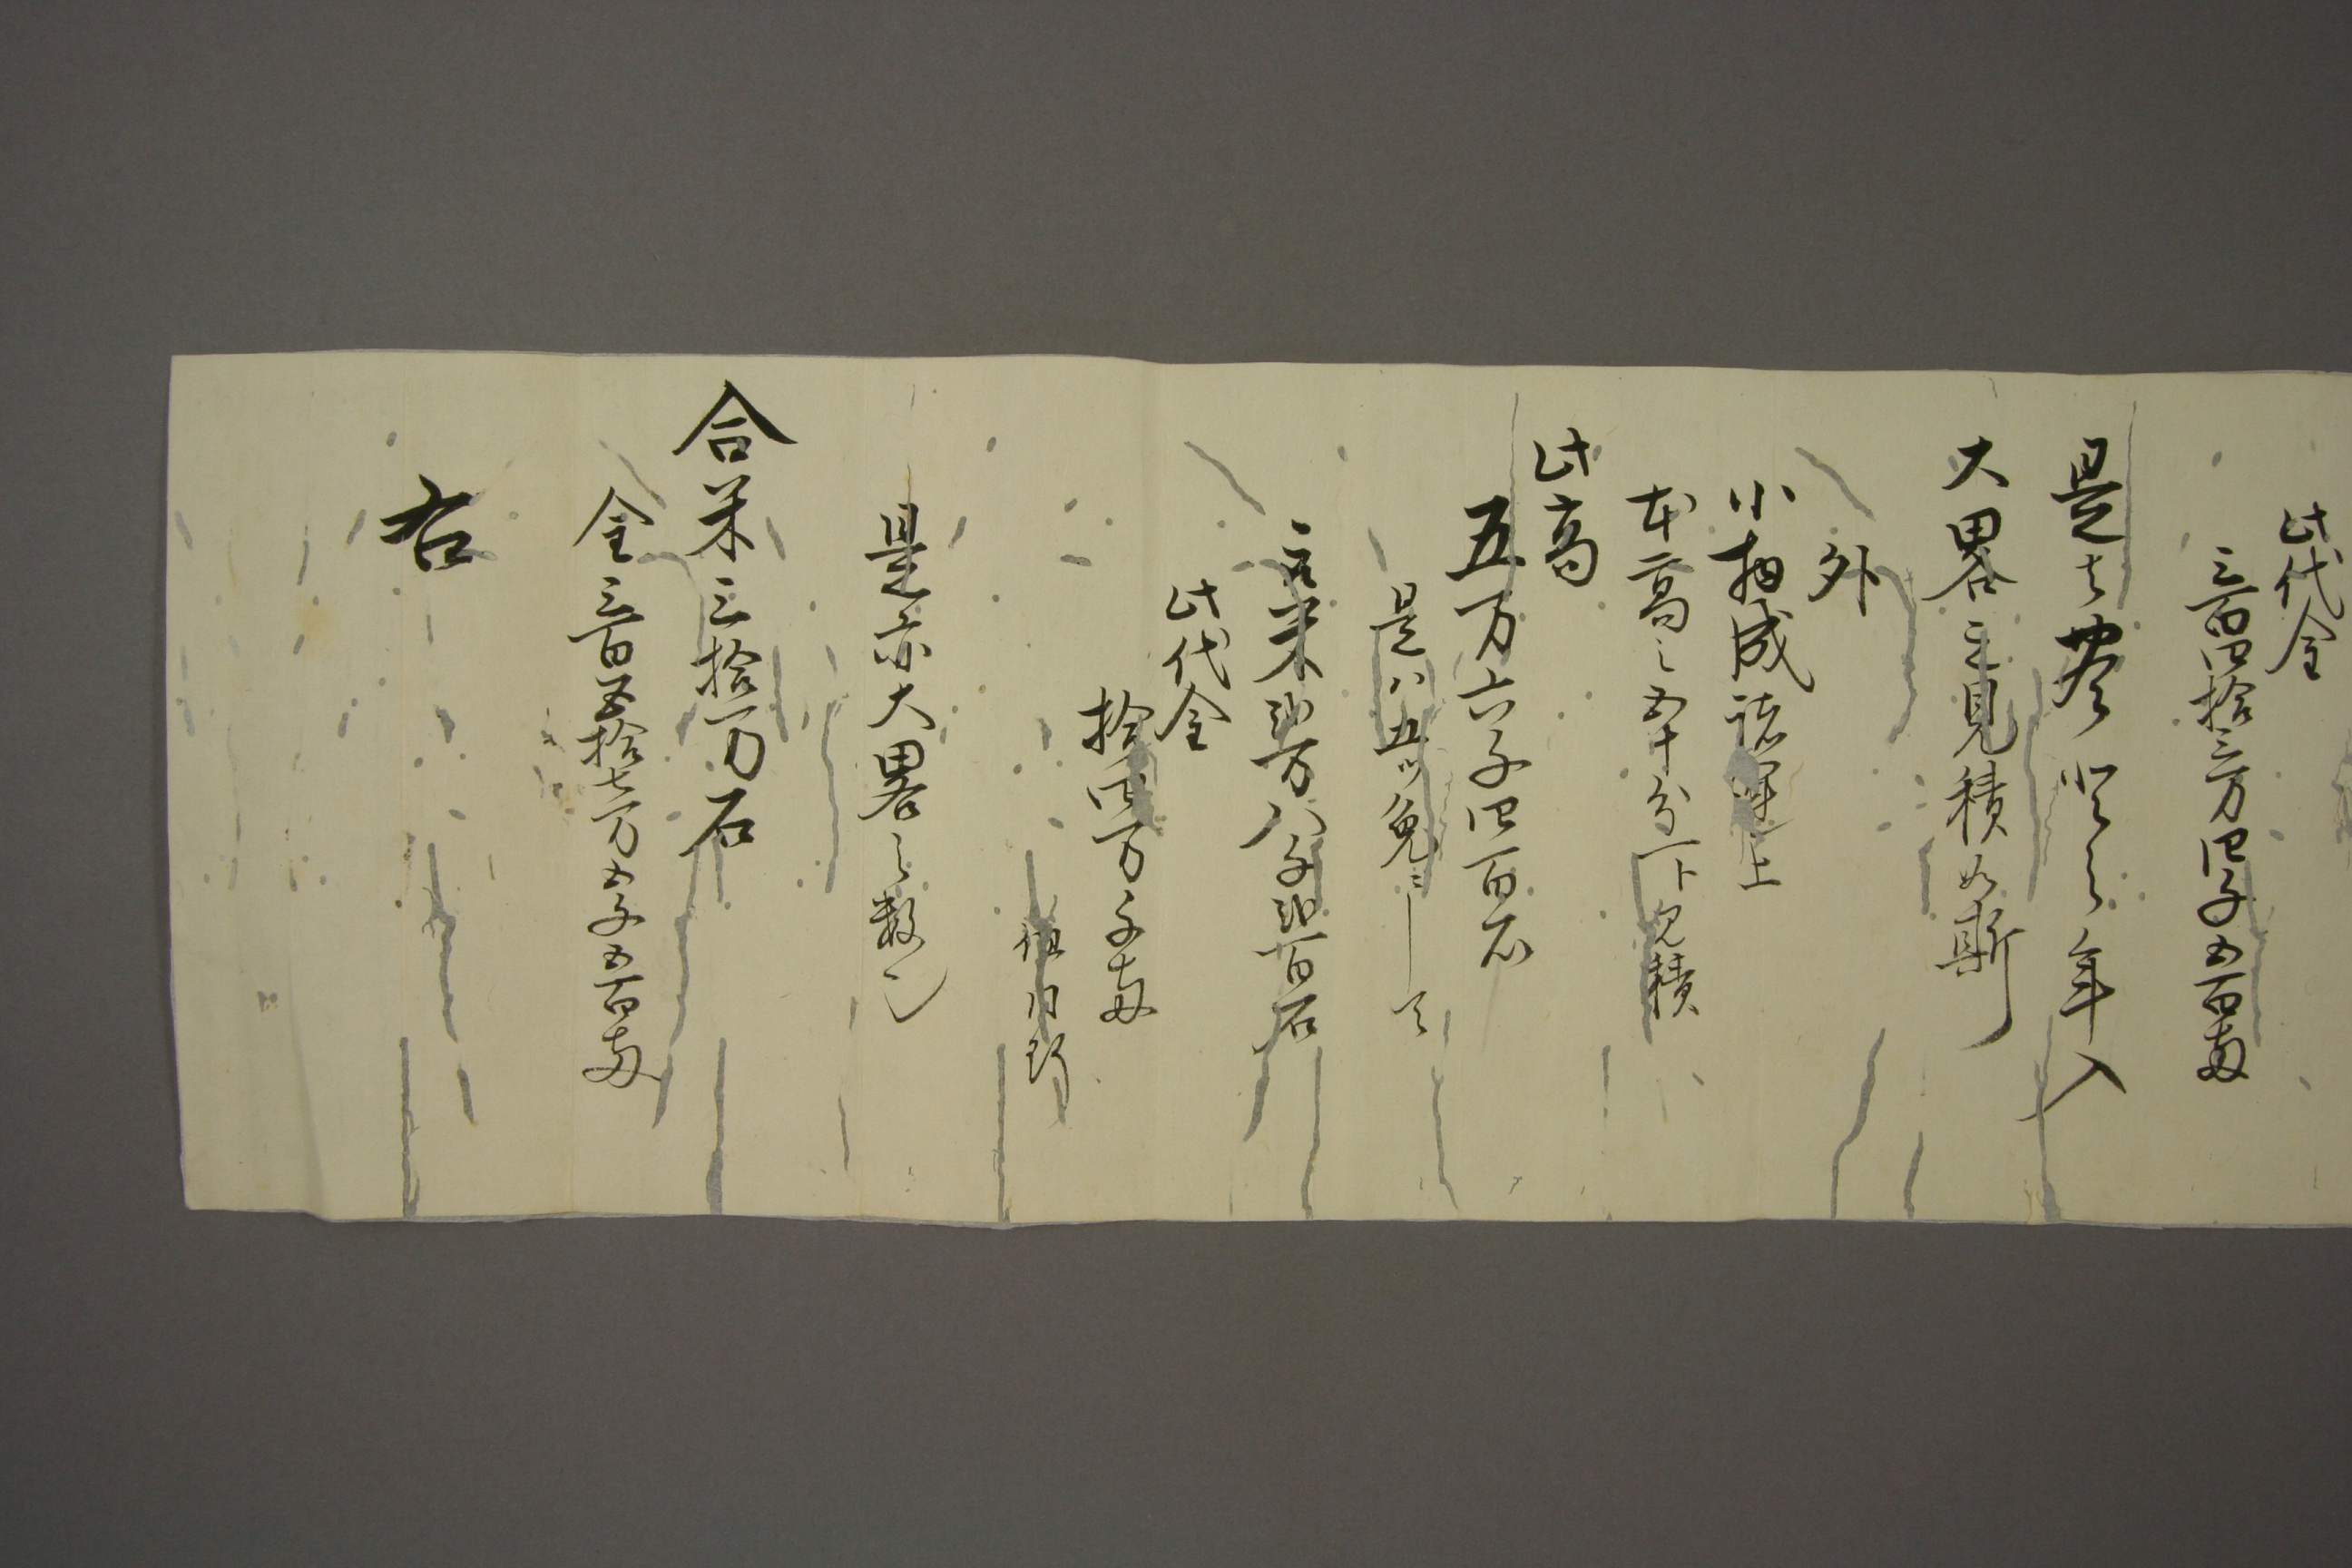 此代金
三百四拾三万四千五百両
年入
大畧之見積如斯
外
小物成諸運上
本高之五十分一ト見積
此高
五万六千四百石
是ハ五ツ免ニ〆
米弐万八千弐百石
此代金
拾四万千両
但右同断
是亦大畧之数也
合米三拾万石
金三百五拾七万五千五百両
右